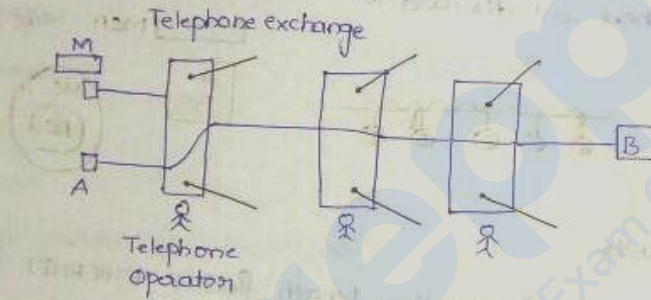 Telephone exchange
M
A
B
Telephone
Operator